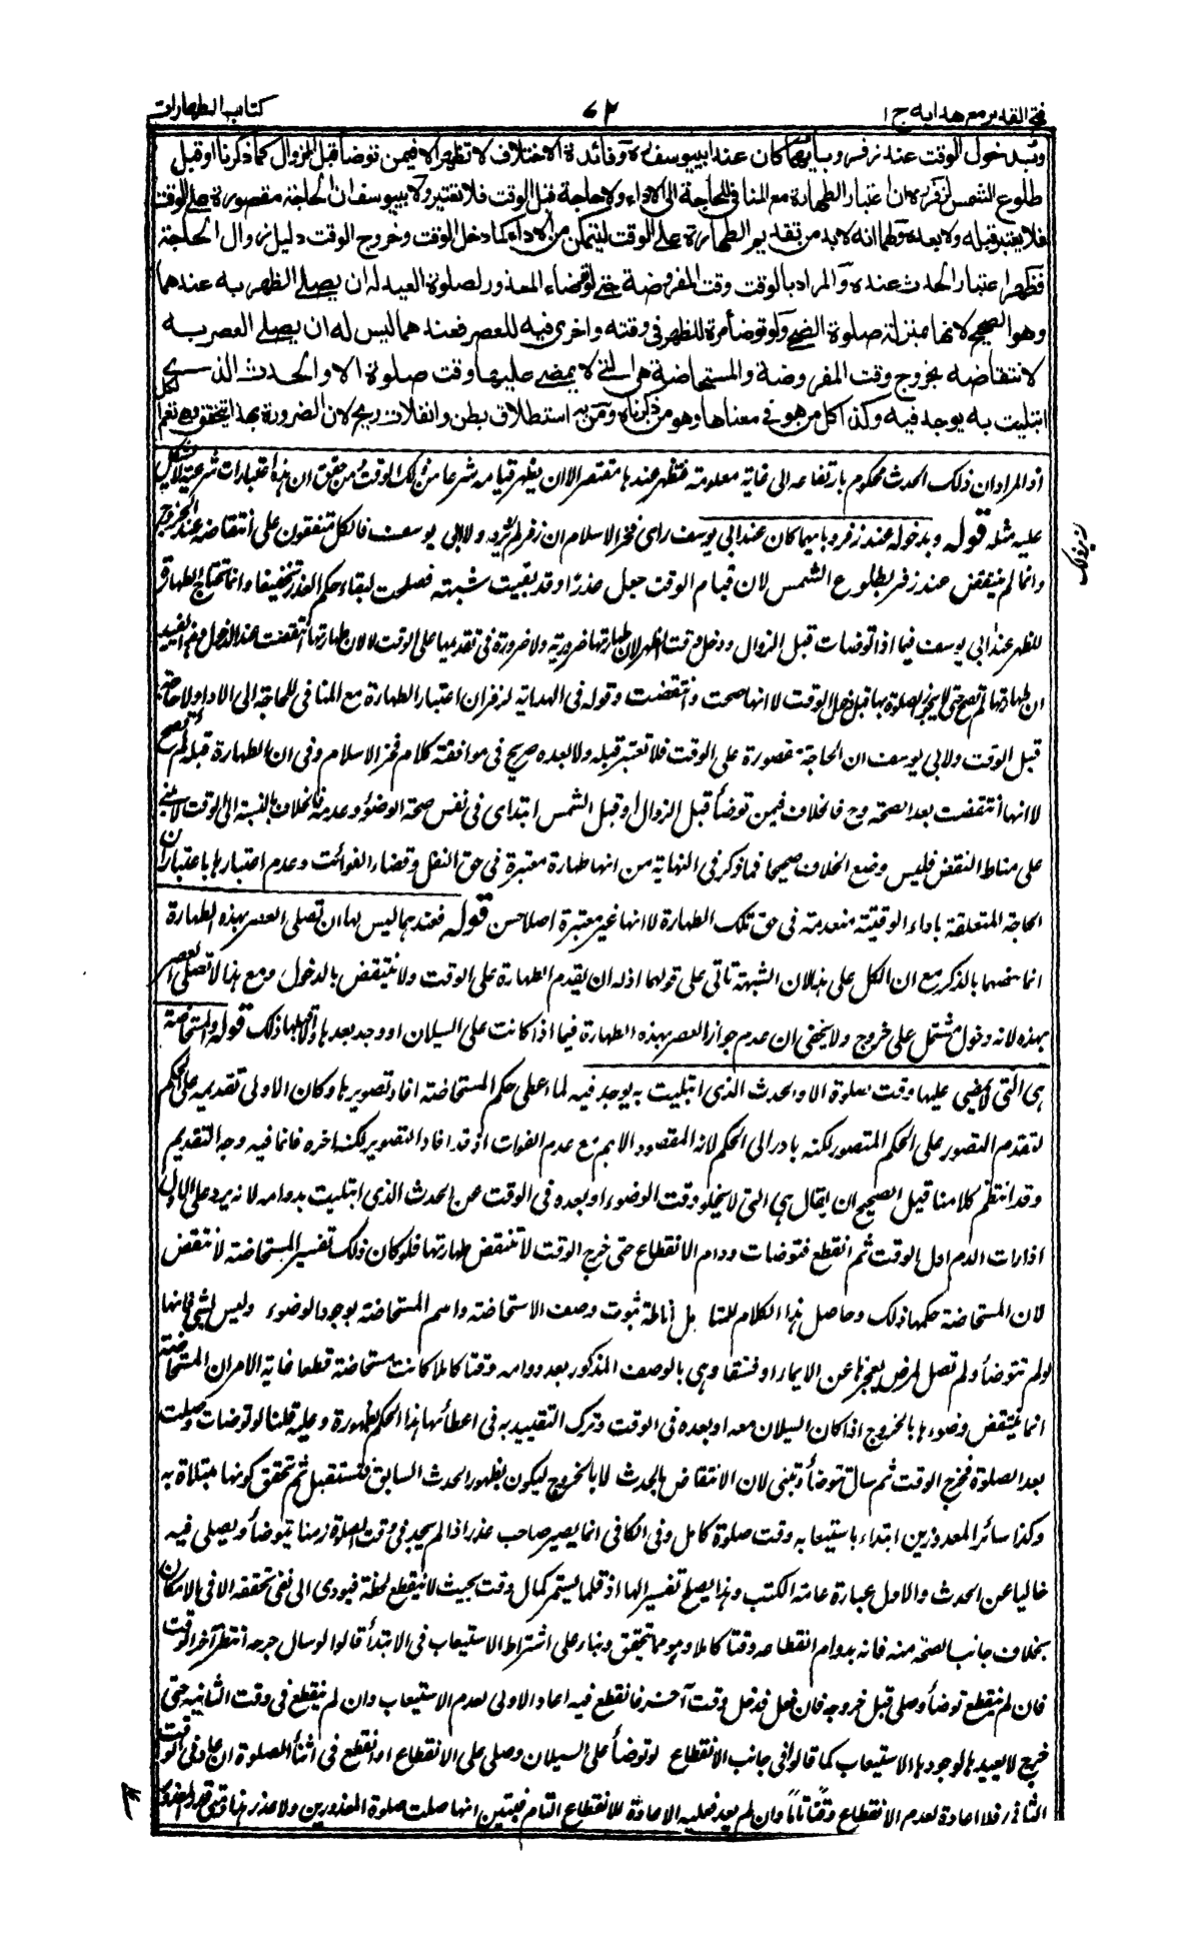 فتح القدير مع هدايه ج ۱
۷۲
كتاب الطهارات
وبدخول الوقت عند زفر وبايهما كان عند ابي يوسف وفائدة الاختلاف لا تظهر الا فيمن توضأ قبل الزوال كما ذكرنا او قبل
طلوع الشمس لزفر ان اعتبار الطهارة مع المنافي للحاجة الى الاداء ولا حاجة قبل الوقت فلا تعتبر ولابي يوسف ان الحاجة مقصورة على الوقت
فلا يعتبر قبله ولا بعده ولهما انه لا بد من تقديم الطهارة على الوقت ليتمكن من الاداء كما دخل الوقت وخروج الوقت دليل زوال الحاجة
فظهر اعتبار الحدث عنده والمراد بالوقت وقت المفروضة حتى لو توضأ المعذور لصلوة العيد له ان يصلي الظهر به عندهما
وهو الصحيح لانها بمنزلة صلوة الضحى ولو توضأ مرة للظهر في وقته واخرى فيه للعصر فعندهما ليس له ان يصلي العصر به
لانتقاضه بخروج وقت المفروضة والمستحاضة هي التي لا يمضي عليها وقت صلوة الا والحدث الذي
ابتليت به يوجد فيه وكذا كل من هو في معناها وهو من ذكرناه ومن به استطلاق بطن وانفلات ريح لان الضرورة بهذا يتحقق وهي تعم الكل
اذ المراد ان ذلك الحدث محكوم بارتفاعه الى غاية معلومة فتظهر عندها مقتصرا لا ان يظهر قيامه شرعا من ذلك الوقت ومن حقق ان هذه اعتبارات شرعية لا يشكل
عليه مثله قوله وبدخوله عند زفر وبايهما كان عند ابي يوسف رأى فخر الاسلام ان زفر لم يرد ولا ابي يوسف فالكل متفقون على انتقاضه عند الخروج
وانما لم ينتقض عند زفر بطلوع الشمس لان قيام الوقت جعل عذرا وقد بقيت شبهته فصلحت لبقاء حكم العذر تخفيفا وانما تحتاج الطهارة
للظهر عند ابي يوسف فيما اذا توضأت قبل الزوال ودخل وقت الظهر لان طهارتها ضرورية ولا ضرورة في تقديمها على الوقت لا لان طهارتها انتقضت عند الدخول
ان طهارتها لم تصح حتى لا يجوز الصلوة بها قبل دخول الوقت لا انها صحت وانتقضت وقوله في الهداية لزفر ان اعتبار الطهارة مع المنافي للحاجة الى الاداء ولا حاجة
قبل الوقت ولابي يوسف ان الحاجة مقصورة على الوقت فلا تعتبر قبله ولا بعده صريح في موافقة كلام فخر الاسلام وفي ان الطهارة قبله لم تصح
لا انها انتقضت بعد الصحة وح فالخلاف فيمن توضأ قبل الزوال او قبل الشمس ابتداء في نفس صحة الوضوء وعدمه فالخلاف بالنسبة الى الوقت لا ينبني
على مناط النقض فليس وضع الخلاف صحيحا فما ذكر في النهاية من انها طهارة معتبرة في حق النفل وقضاء الفوائت وعدم اعتبارها باعتبار ان
الحاجة المتعلقة باداء الوقتية منعدمة في حق تلك الطهارة لا انها غير معتبرة اصلا حسن قوله فعندهما ليس لها ان تصلي العصر بهذه الطهارة
انما خصهما بالذكر مع ان الكل على هذا لان الشبهة تاتي على قولهما اذ له ان يقدم الطهارة على الوقت ولا تنتقض بالدخول ومع هذا لا تصلي العصر
بهذه لانه دخول مشتمل على خروج ولا يخفى ان عدم جواز العصر بهذه الطهارة فيما اذا كانت على السيلان او وجد بعدها قوله والمستحاضة
هي التي لا يمضي عليها وقت صلوة الا والحدث الذي ابتليت به يوجد فيه لما اعطى حكم المستحاضة افاد تصويرها وكان الاولى تقديمه على الحكم
لتقدم التصور على الحكم المتصور لكنه بادر الى الحكم لانه المقصود الاهم مع عدم الفوات اذ قد افاد التصوير لكنه اخره فانما فيه وجه التقديم
وقد انتظم كلامنا قيل الصحيح ان يقال هي التي لا يخلو وقت الوضوء او بعده في الوقت عن الحدث الذي ابتليت بدوامه لانه يرد على الاول
اذا رات الدم اول الوقت ثم انقطع فتوضات ودام الانقطاع حتى خرج الوقت لا تنتقض طهارتها فلو كان ذلك تفسير المستحاضة لانتقض
لان المستحاضة حكمها ذلك وحاصل هذا الكلام للمتأمل اناطة ثبوت وصف الاستحاضة واسم المستحاضة بوجود الوضوء وليس بشيء فانها
لو لم تتوضأ ولم تصل لمرض يعجزها عن الايماء او فسقا وهي بالوصف المذكور بعد دوامه وقتا كاملا كانت مستحاضة قطعا غاية الامر ان المستحاضة
انما ينتقض وضوءها بالخروج اذا كان السيلان معه او بعده في الوقت وترك التقييد به في اعطائها هذا الحكم لظهوره وعليه قلنا لو توضات وصلت
بعد الصلوة فخرج الوقت ثم سال تتوضأ وتبني لان الانتقاض بالحدث لا بالخروج ليكون بظهور الحدث السابق فتستقبل ثم تحقق كونها مبتلاة به
وكذا سائر المعذورين ابتداء باستيعابه وقت صلوة كامل وفي الكافي انما يصير صاحب عذر اذا لم يجد في وقت الصلوة زمنا يتوضأ ويصلي فيه
خاليا عن الحدث والاول عبارة عامة الكتب وهذا يصلح تفسيرا لها اذ قلما يستمر كمال وقت بحيث لا ينقطع لحظة فيودي الى نفي تحققه الا في الامكان
بخلاف جانب الصحة منه فانه بدوام انقطاعه وقتا كاملا وهو مما يتحقق وبناء على اشتراط الاستيعاب في الابتداء قالوا لو سال جرحه انتظر آخر الوقت
فان لم ينقطع توضأ وصلى قبل خروجه فان فعل فدخل وقت آخر فانقطع فيه اعاد الاولى لعدم الاستيعاب وان لم ينقطع في وقت الثانية حتى
خرج لا يعيدها لوجود الاستيعاب كما قالوا في جانب الانقطاع لو توضأ على السيلان وصلى على الانقطاع او انقطع في اثناء الصلوة ان عاد في الوقت
الثاني فلا اعادة لعدم الانقطاع وقتا تاما وان لم يعد فعليه الاعادة للانقطاع التام فيتبين انها صلت صلوة المعذورين ولا عذر